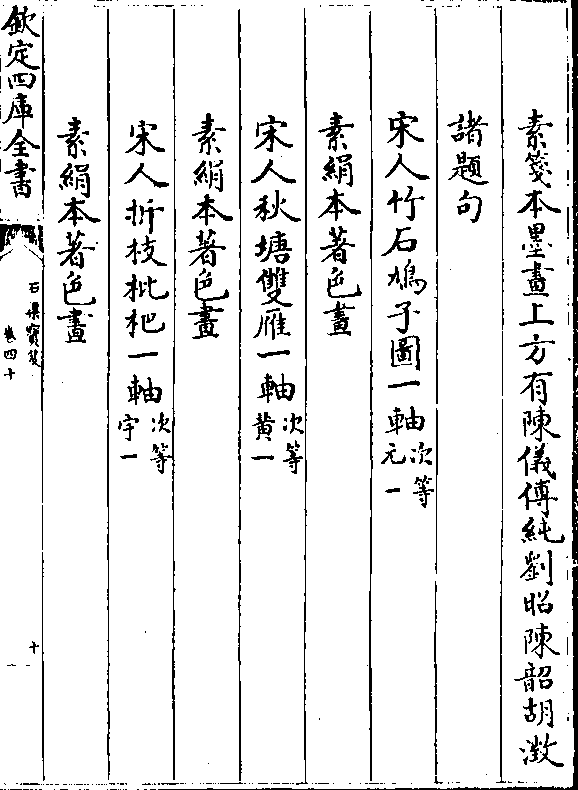 素箋本墨畫上方有陳儀傅純劉昭陳韶胡澂
諸題句
宋人竹石鳩子圖一軸次等元一
素絹本著色畫
宋人秋塘雙雁一軸次等黃一
素絹本著色畫
宋人折枝枇杷一軸次等宇一
素絹本著色畫
欽定四庫全書
石渠寶笈
卷四十
十